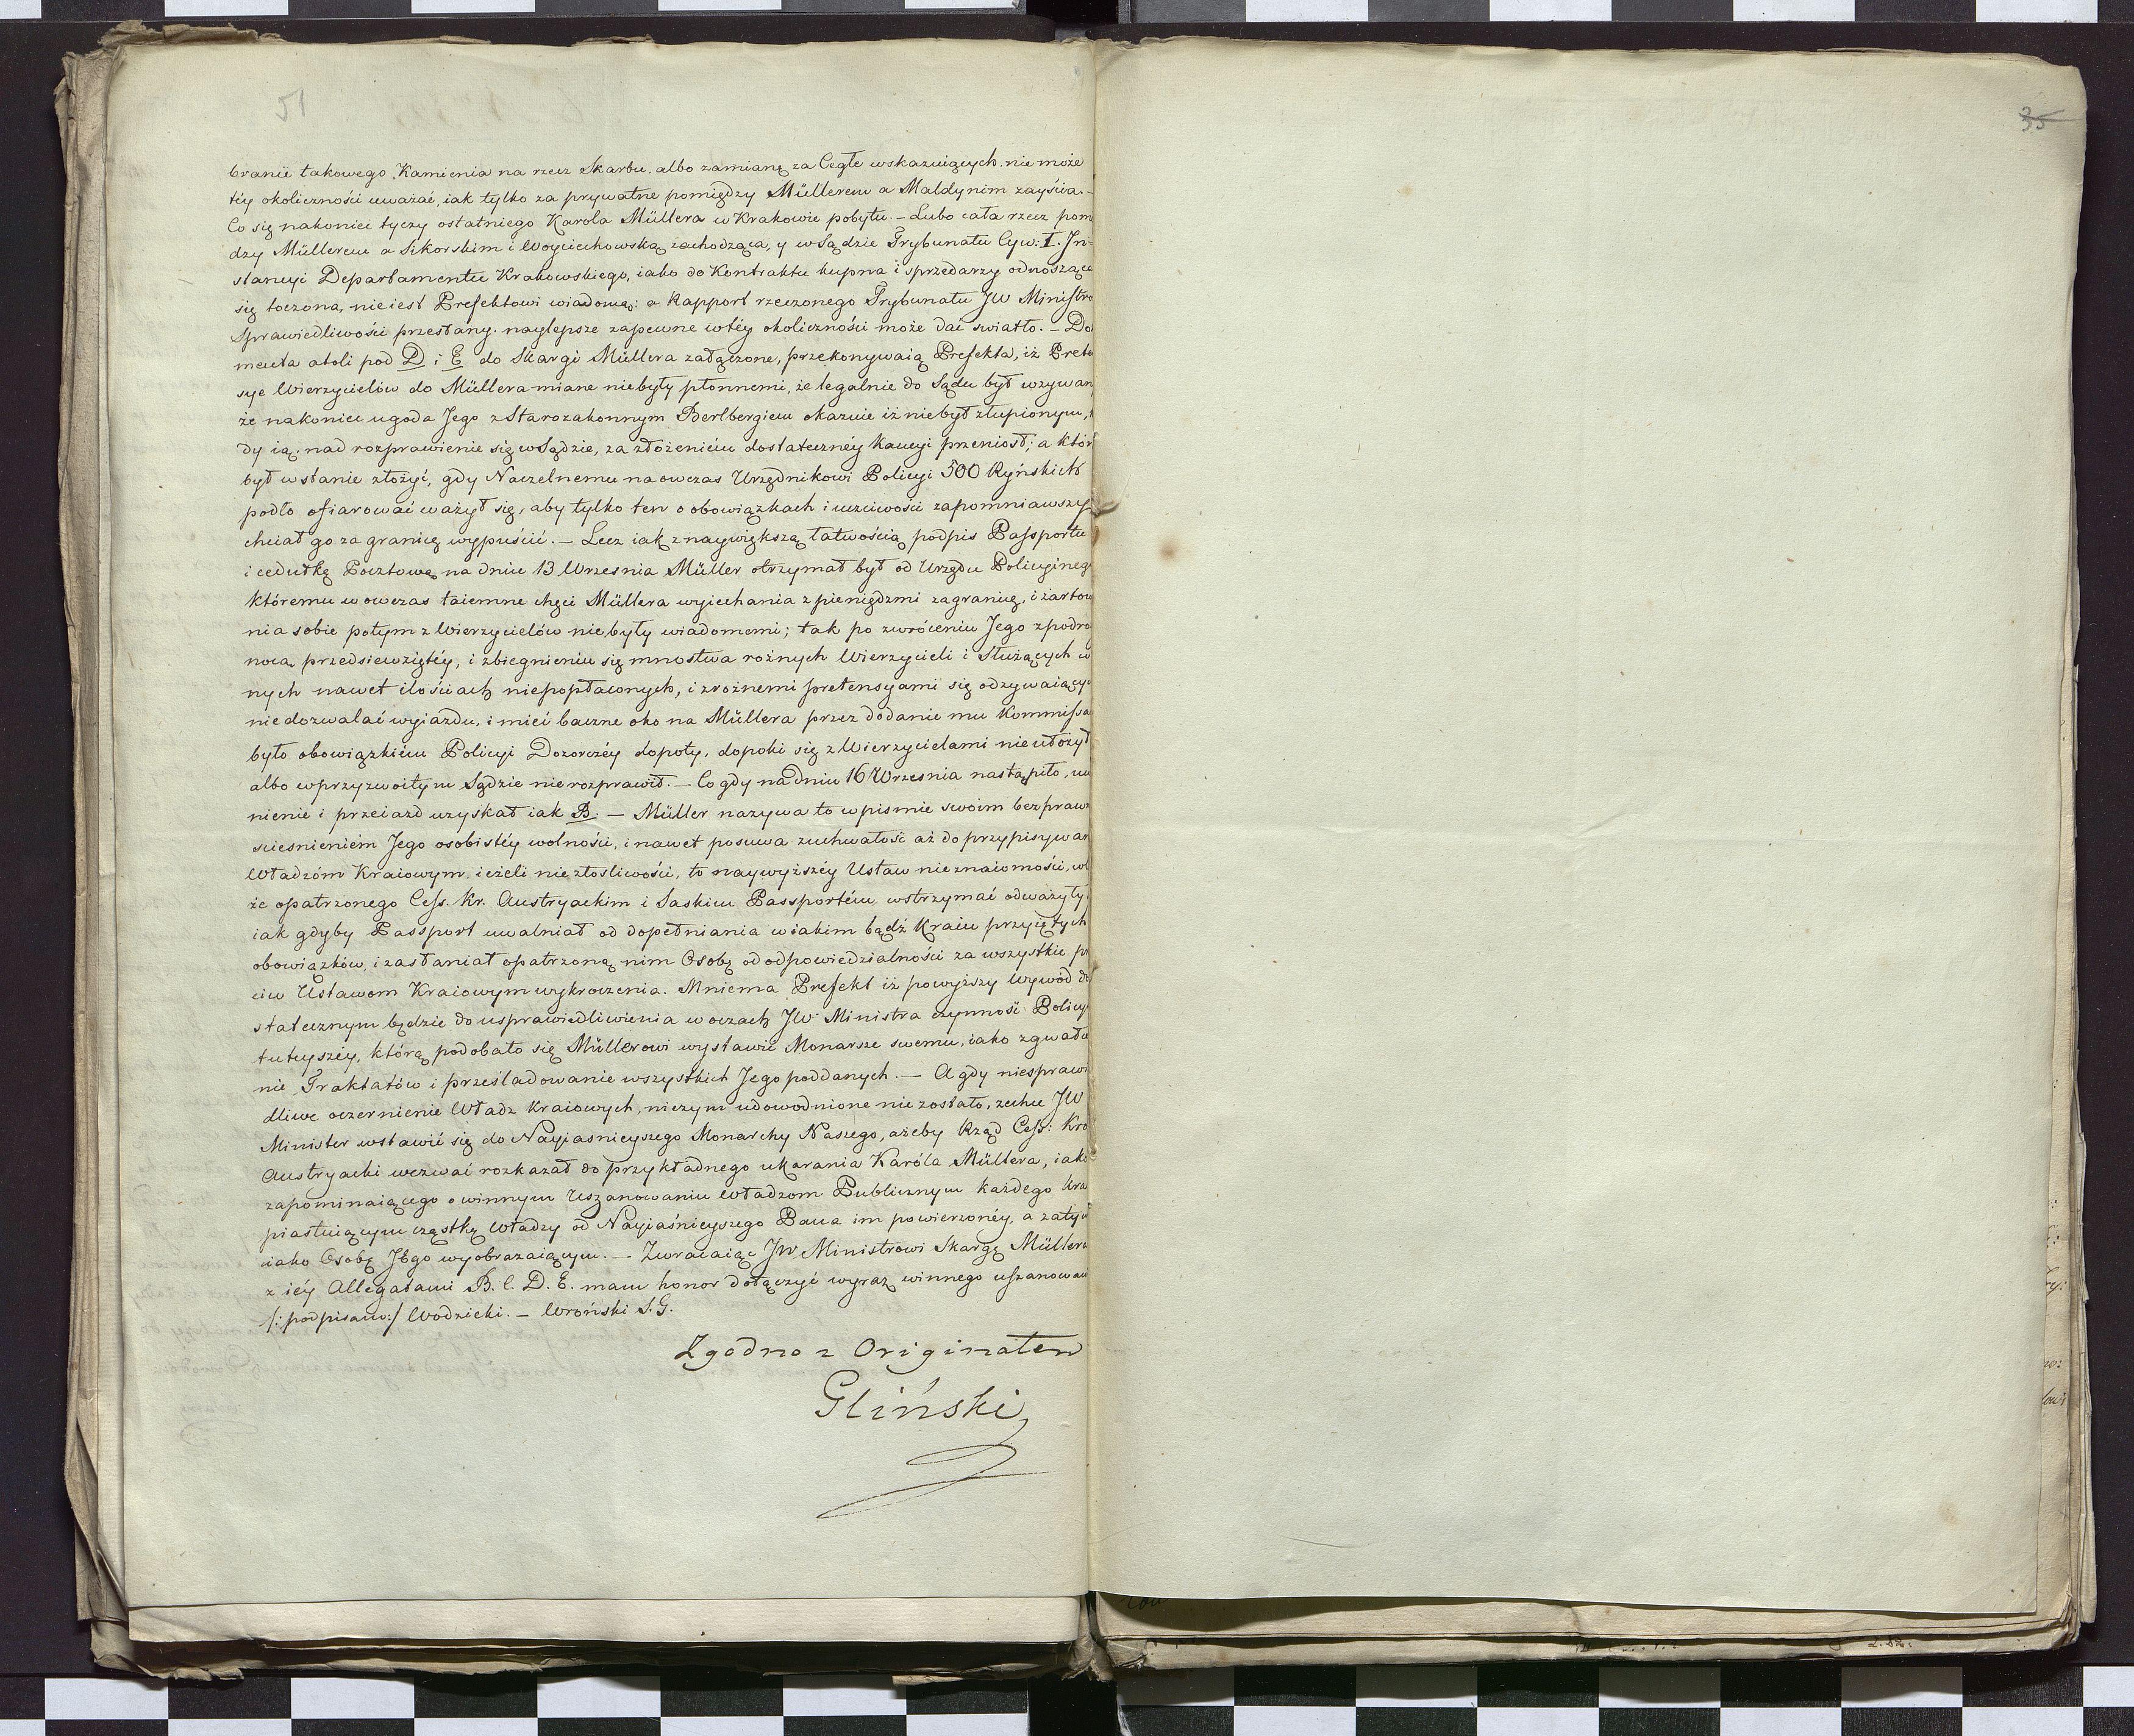 51
35
branie takowego Kamienia na rzecz Skarbu, albo zamianę za Cegłe wskazuiących, nie może
téy okoliczności uważać, iak tylko za prywatne pomiędzy Müllerem a Maldynim zayścia.-
Co się nakoniec tyczy ostatniego Karola Müllera w Krakowie pobytu. - Lubo cała rzecz pom
dzy Müllerem a Sikorskim i Woyciechowską zachodząca, y w Sądzie Trybunału Cyw: I. In-
stancyi Departamentu Krakowskiego, iako do Kontraktu kupna i sprzedarzy odnosząca
się toczona, nie iest Prefektowi wiadomą: a Rapport rzeczonego Trybunału JW Ministro
Sprawiedliwości przesłany, naylepsze zapewne w téy okoliczności może dać swiatło. - Do
menta atoli pod D i E do Skargi Müllera załączone, przekonywaią Prefekta, iż Prete
sye Wierzycielów do Müllera miane niebyły płonnemi, że legalnie do Sądu był wzywan
że nakoniec ugoda Jego z Starozakonnym Berlbergiem okazuie iż niebył złupionym,
dy ią nad rozprawienie się w Sądzie, za złożeniém dostatecznéy kaucyi przeniosł; a któr
był w stanie złożyć, gdy Naczelnemu na owczas Urzędnikowi Policyi 500 Ryńskich
podło ofiarować ważył się, aby tylko ten o obowiązkach i uczciwości zapomniawszy
chciał go za granicę wypuścić. - Lecz iak z naywiększą łatwością podpis Passportu
i cedułkę Pocztową na dniu 13 Wrzesnia Müller otrzymał był od Urzędu Policyineg
któremu w owczas taiemne chęci Müllera wyiechania z pieniędzmi zagranicę, i żartow
nia sobie potym z Wierzycielów niebyły wiadomemi; tak po zwróceniu Jego zpodro
nocą przedsiewziętéy, i zbiegnieniu się mnostwa rożnych Wierzycieli i Służących w
nych nawet ilościach niepopłaconych, i z rożnemi pretensyami się odzywaiący
niedozwalać wyiazdu, i mieć baczne oko na Müllera przez dodanie mu Kommissa
było obowiązkiém Policyi Dozorczéy dopoty, dopoki się z Wierzycielami nie ułożył
albo w przyzwoitym Sądzie nie rozprawił. - Co gdy na dniu 16 Wrzesnia nastąpiło, uw
nienie i przeiazd uzyskał iak B. - Müller nazywa to w pismie swoim bezpraw
sciesnieniém Jego osobistéy wolności, i nawet posuwa zuchwałość aż do przypisywan
Władzóm Kraiowym, ieżeli nie złosliwości, to naywyższéy Ustaw nieznaiomości,
że opatrzonego Cess. Kr. Austryackim i Saskim Passportém, wstrzymać odważyły
iak gdyby Passport uwalniał od dopełniania w iakim bądź Kraiu przyiętych
obowiązków, i zasłaniał opatrzoną nim Osobę od odpowiedzialności za wszystkie p
ciw Ustawom Kraiowym wykroczenia. Mniema Prefekt iż powyższy wywód do
statecznym będzie do usprawiedliwienia w oczach JW Ministra czynność Policyi
tuteyszéy, którą podobało się Müllerowi wystawić Monarsze swemu, iako zgwałce
nie Traktatów i prześladowanie wszystkich Jego poddanych. - A gdy niespraw
dliwe oczernienie Władz kraiowych, niczym udowodnione nie zostało, zechce JW
Minister wstawić się do Nayiasnieyszego Monarchy Naszego, ażeby Rząd Cess: Kro
Austryacki wezwać rozkazał do przykładnego ukarania Karóla Müllera, iako
zapominaiącego o winnym Uszanowaniu Władzom Publicznym każdego kra
piastuiącym cząstkę Władzy od Nayiaśnieyszego Pana im powierzonéy, a zatym
iako Osobę Jego wyobrażaiącym. - Zwracaiąc JW Ministrowi Skargę Müllera
z iéy Allegatami B. C. D. E. mam honor dołączyć wyraz winnego uszanowan
/: podpisano:/ Wodzicki. - Wroński S. G.
Zgodno z Originałem
Gliński